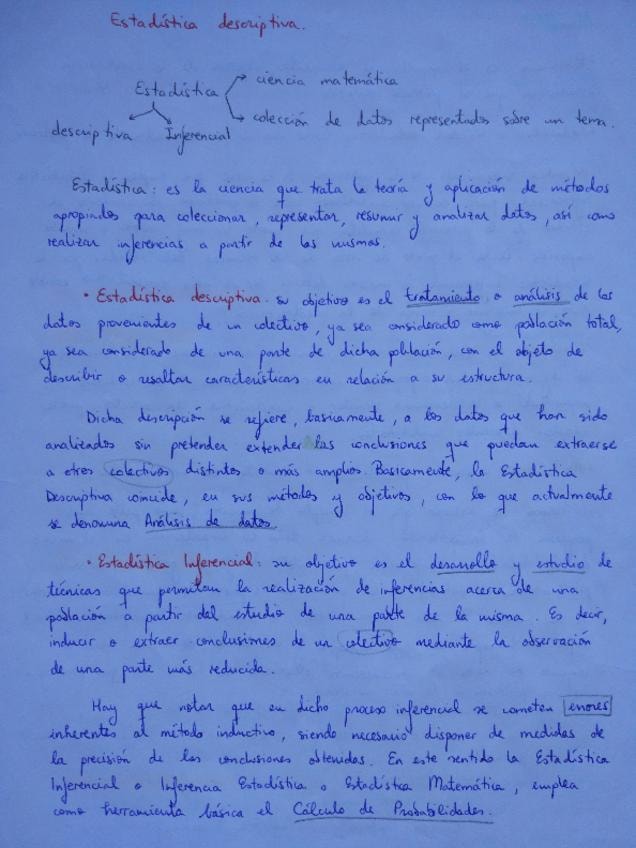 Estadística descriptiva.
Estadística
ciencia matemática
colección de datos representados sobre un tema.
descriptiva Inferencial
Estadística: es la ciencia que trata la teoría y aplicación de métodos
apropiados para coleccionar, representar, resumir y analizar datos, así como
realizar inferencias a partir de los mismos.
• Estadística descriptiva: su objetivo es el tratamiento o análisis de los
datos provenientes de un colectivo, ya sea considerado como población total,
ya sea considerado de una parte de dicha población, con el objeto de
describir o resaltar características en relación a su estructura.
Dicha descripción se refiere, basicamente, a los datos que han sido
analizados sin pretender extender las conclusiones que puedan extraerse
a otros colectivos distintos o más amplios. Basicamente, la Estadística
Descriptiva coincide, en sus métodos y objetivos, con lo que actualmente
se denomina Análisis de datos.
• Estadística Inferencial: su objetivo es el desarrollo y estudio de
técnicas que permitan la realización de inferencias acerca de una
población a partir del estudio de una parte de la misma. Es decir,
inducir o extraer conclusiones de un colectivo mediante la observación
de una parte más reducida.
Hay que notar que en dicho proceso inferencial se cometen errores
inherentes al método inductivo, siendo necesario disponer de medidas de
la precisión de las conclusiones obtenidas. En este sentido la Estadística
Inferencial o Inferencia Estadística o Estadística Matemática, emplea
como herramienta básica el Cálculo de Probabilidades.